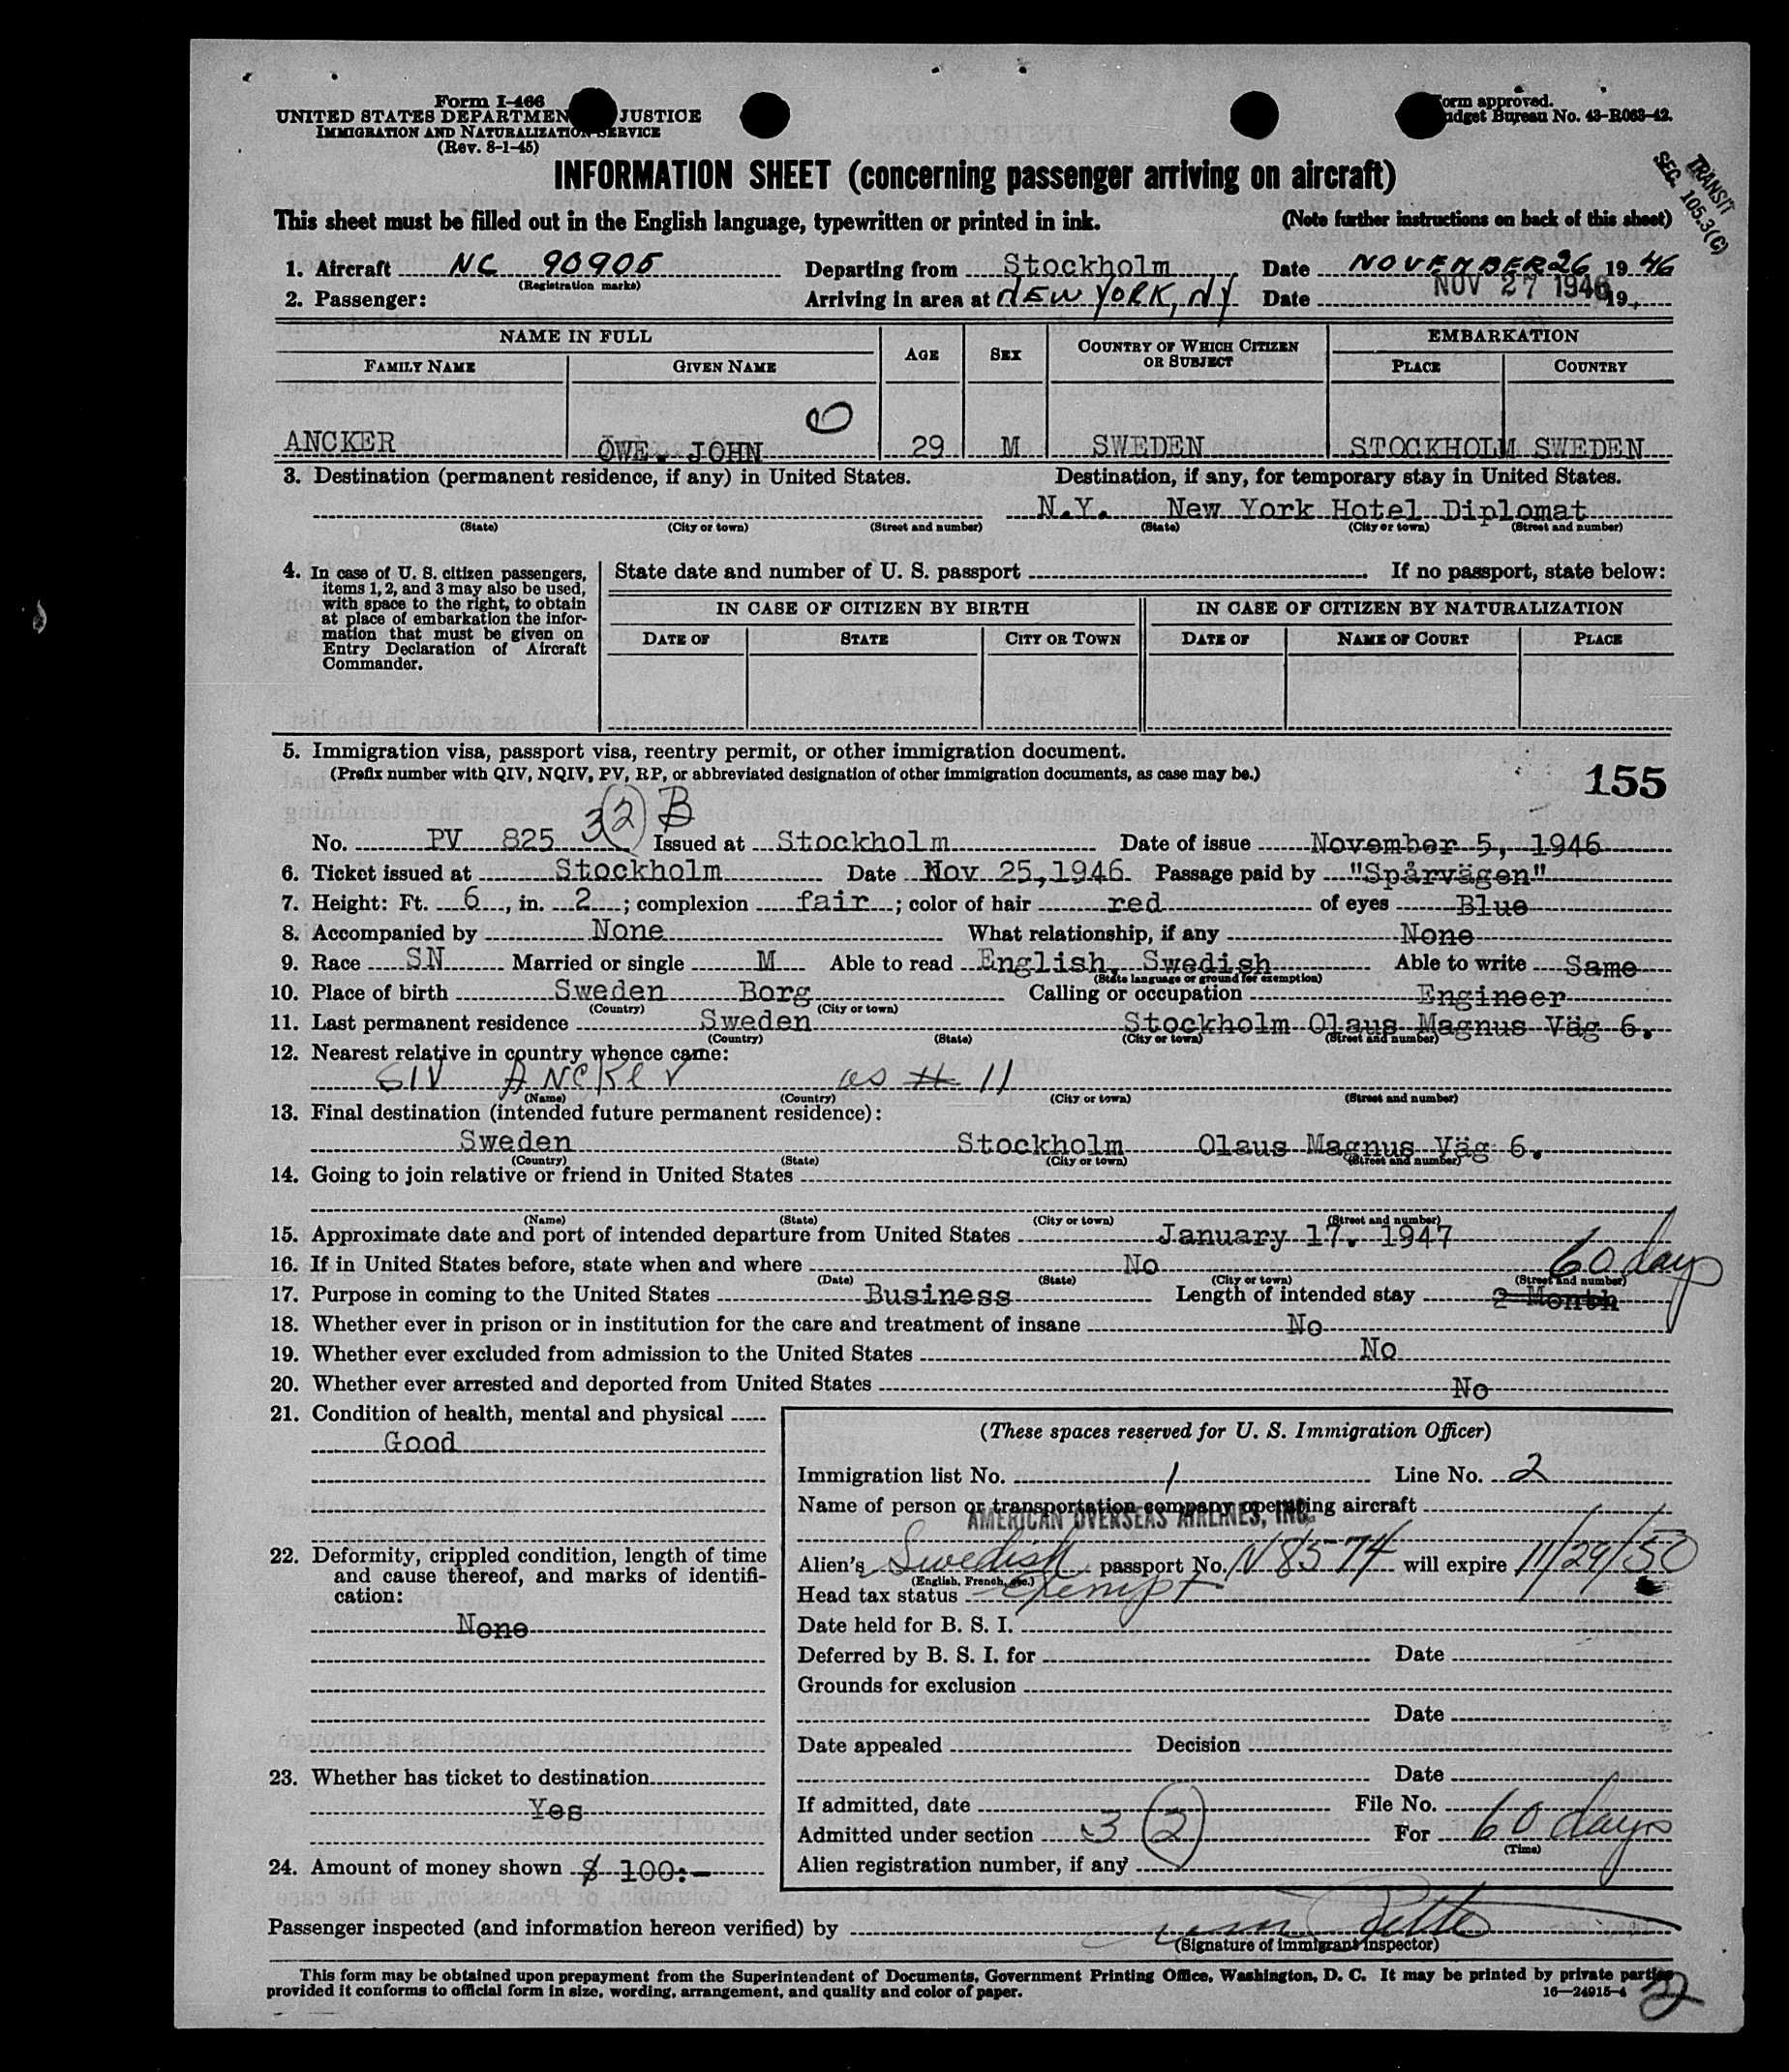 Form I-466
UNITED STATES DEPARTMEN JUSTICE
IMMIGRATION AND NATURALIZATION SERVICE
(Rev. 8-1-45)
orm approved.
udget Bureau No. 43-R063-42.
TRANSIT
SEC. 105.3(C)
INFORMATION SHEET (concerning passenger arriving on aircraft)
This sheet must be filled out in the English language, typewritten or printed in ink. (Note further instructions on back of this sheet)
1. Aircraft NC 90905 Departing from Stockholm Date NOVEMBER 26 1946
(Registration marks)
2. Passenger: Arriving in area at NEW YORK, NY Date NOV 27 1946 19
NAME IN FULL AGE SEX COUNTRY OF WHICH CITIZEN OR SUBJECT EMBARKATION
FAMILY NAME GIVEN NAME PLACE COUNTRY
ANCKER OWE. JOHN 29 M SWEDEN STOCKHOLM SWEDEN
3. Destination (permanent residence, if any) in United States. Destination, if any, for temporary stay in United States.
N.Y. New York Hotel Diplomat
(State) (City or town) (Street and number) (State) (City or town) (Street and number)
4. In case of U. S. citizen passengers, items 1, 2, and 3 may also be used, with space to the right, to obtain at place of embarkation the information that must be given on Entry Declaration of Aircraft Commander.
State date and number of U. S. passport If no passport, state below:
IN CASE OF CITIZEN BY BIRTH IN CASE OF CITIZEN BY NATURALIZATION
DATE OF STATE CITY OR TOWN DATE OF NAME OF COURT PLACE
5. Immigration visa, passport visa, reentry permit, or other immigration document.
(Prefix number with QIV, NQIV, PV, RP, or abbreviated designation of other immigration documents, as case may be.)
155
3(2) B
No. PV 825 Issued at Stockholm Date of issue November 5, 1946
6. Ticket issued at Stockholm Date Nov 25,1946 Passage paid by "Spårvägen"
7. Height: Ft. 6, in. 2; complexion fair; color of hair red of eyes Blue
8. Accompanied by None What relationship, if any None
9. Race SN Married or single M Able to read English, Swedish Able to write Same
(State language or ground for exemption)
10. Place of birth Sweden Borg Calling or occupation Engineer
(Country) (City or town)
11. Last permanent residence Sweden Stockholm Olaus Magnus Väg 6.
(Country) (State) (City or town) (Street and number)
12. Nearest relative in country whence came:
SIV ANCKER as # 11
(Name) (Country) (City or town) (Street and number)
13. Final destination (intended future permanent residence):
Sweden Stockholm Olaus Magnus Väg 6.
(Country) (State) (City or town) (Street and number)
14. Going to join relative or friend in United States
(Name) (State) (City or town) (Street and number)
15. Approximate date and port of intended departure from United States January 17. 1947
16. If in United States before, state when and where No
(Date) (State) (City or town) (Street and number)
60 days
17. Purpose in coming to the United States Business Length of intended stay 2 Month
18. Whether ever in prison or in institution for the care and treatment of insane No
19. Whether ever excluded from admission to the United States No
20. Whether ever arrested and deported from United States No
21. Condition of health, mental and physical
Good
22. Deformity, crippled condition, length of time and cause thereof, and marks of identification:
None
23. Whether has ticket to destination
Yes
24. Amount of money shown $ 100:-
(These spaces reserved for U. S. Immigration Officer)
Immigration list No. 1 Line No. 2
Name of person or transportation company operating aircraft
AMERICAN OVERSEAS AIRLINES, INC.
Alien's Swedish passport No. N8574 will expire 11/29/50
(English, French, etc.)
Head tax status Exempt
Date held for B. S. I.
Deferred by B. S. I. for Date
Grounds for exclusion
Date
Date appealed Decision
Date
If admitted, date File No.
Admitted under section 3 (2) For 60 days
(Time)
Alien registration number, if any
Passenger inspected (and information hereon verified) by
(Signature of immigrant inspector)
This form may be obtained upon prepayment from the Superintendent of Documents, Government Printing Office, Washington, D. C. It may be printed by private parties
provided it conforms to official form in size, wording, arrangement, and quality and color of paper. 16—24915-4
2